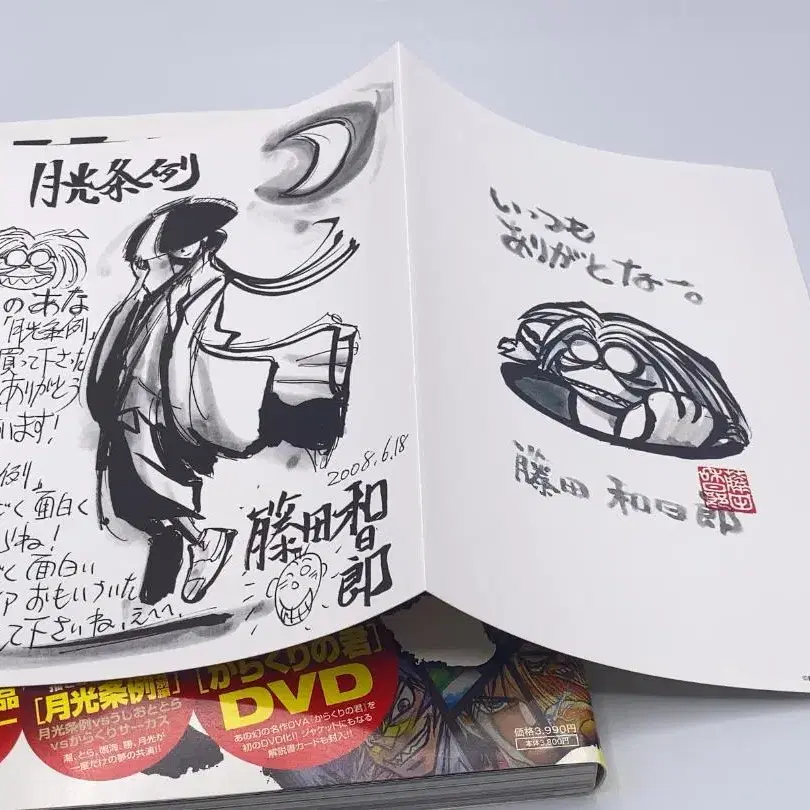 月光条例
のあな
「月光条例」
買って下さった
ありがとう
います!
例」
ごく面白く
らね!
ごく面白い
ア おもいついた
して下さいね、えへへ、
2008.6.18
藤田和日郎
いつも
ありがとなー。
藤田和日郎
品
[月光条例]
月光条例vsうしおととら
vsからくりサーカス
潮、とら、鳴海、勝、月光が
一度だけの夢の共演!!
[からくりの君]
DVD
あの幻の名作OVA「からくりの君」を
初のDVD化!! ジャケットにもなる
解説書カードも封入!!
価格3,990円
本体3,800円